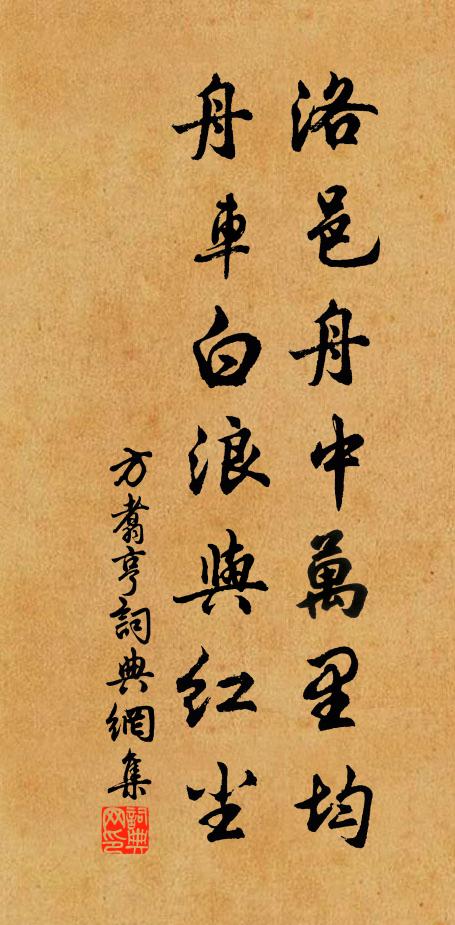 洛邑舟中萬里均
舟車白浪與紅尘
方翥亨詞典網集
詞典
网印